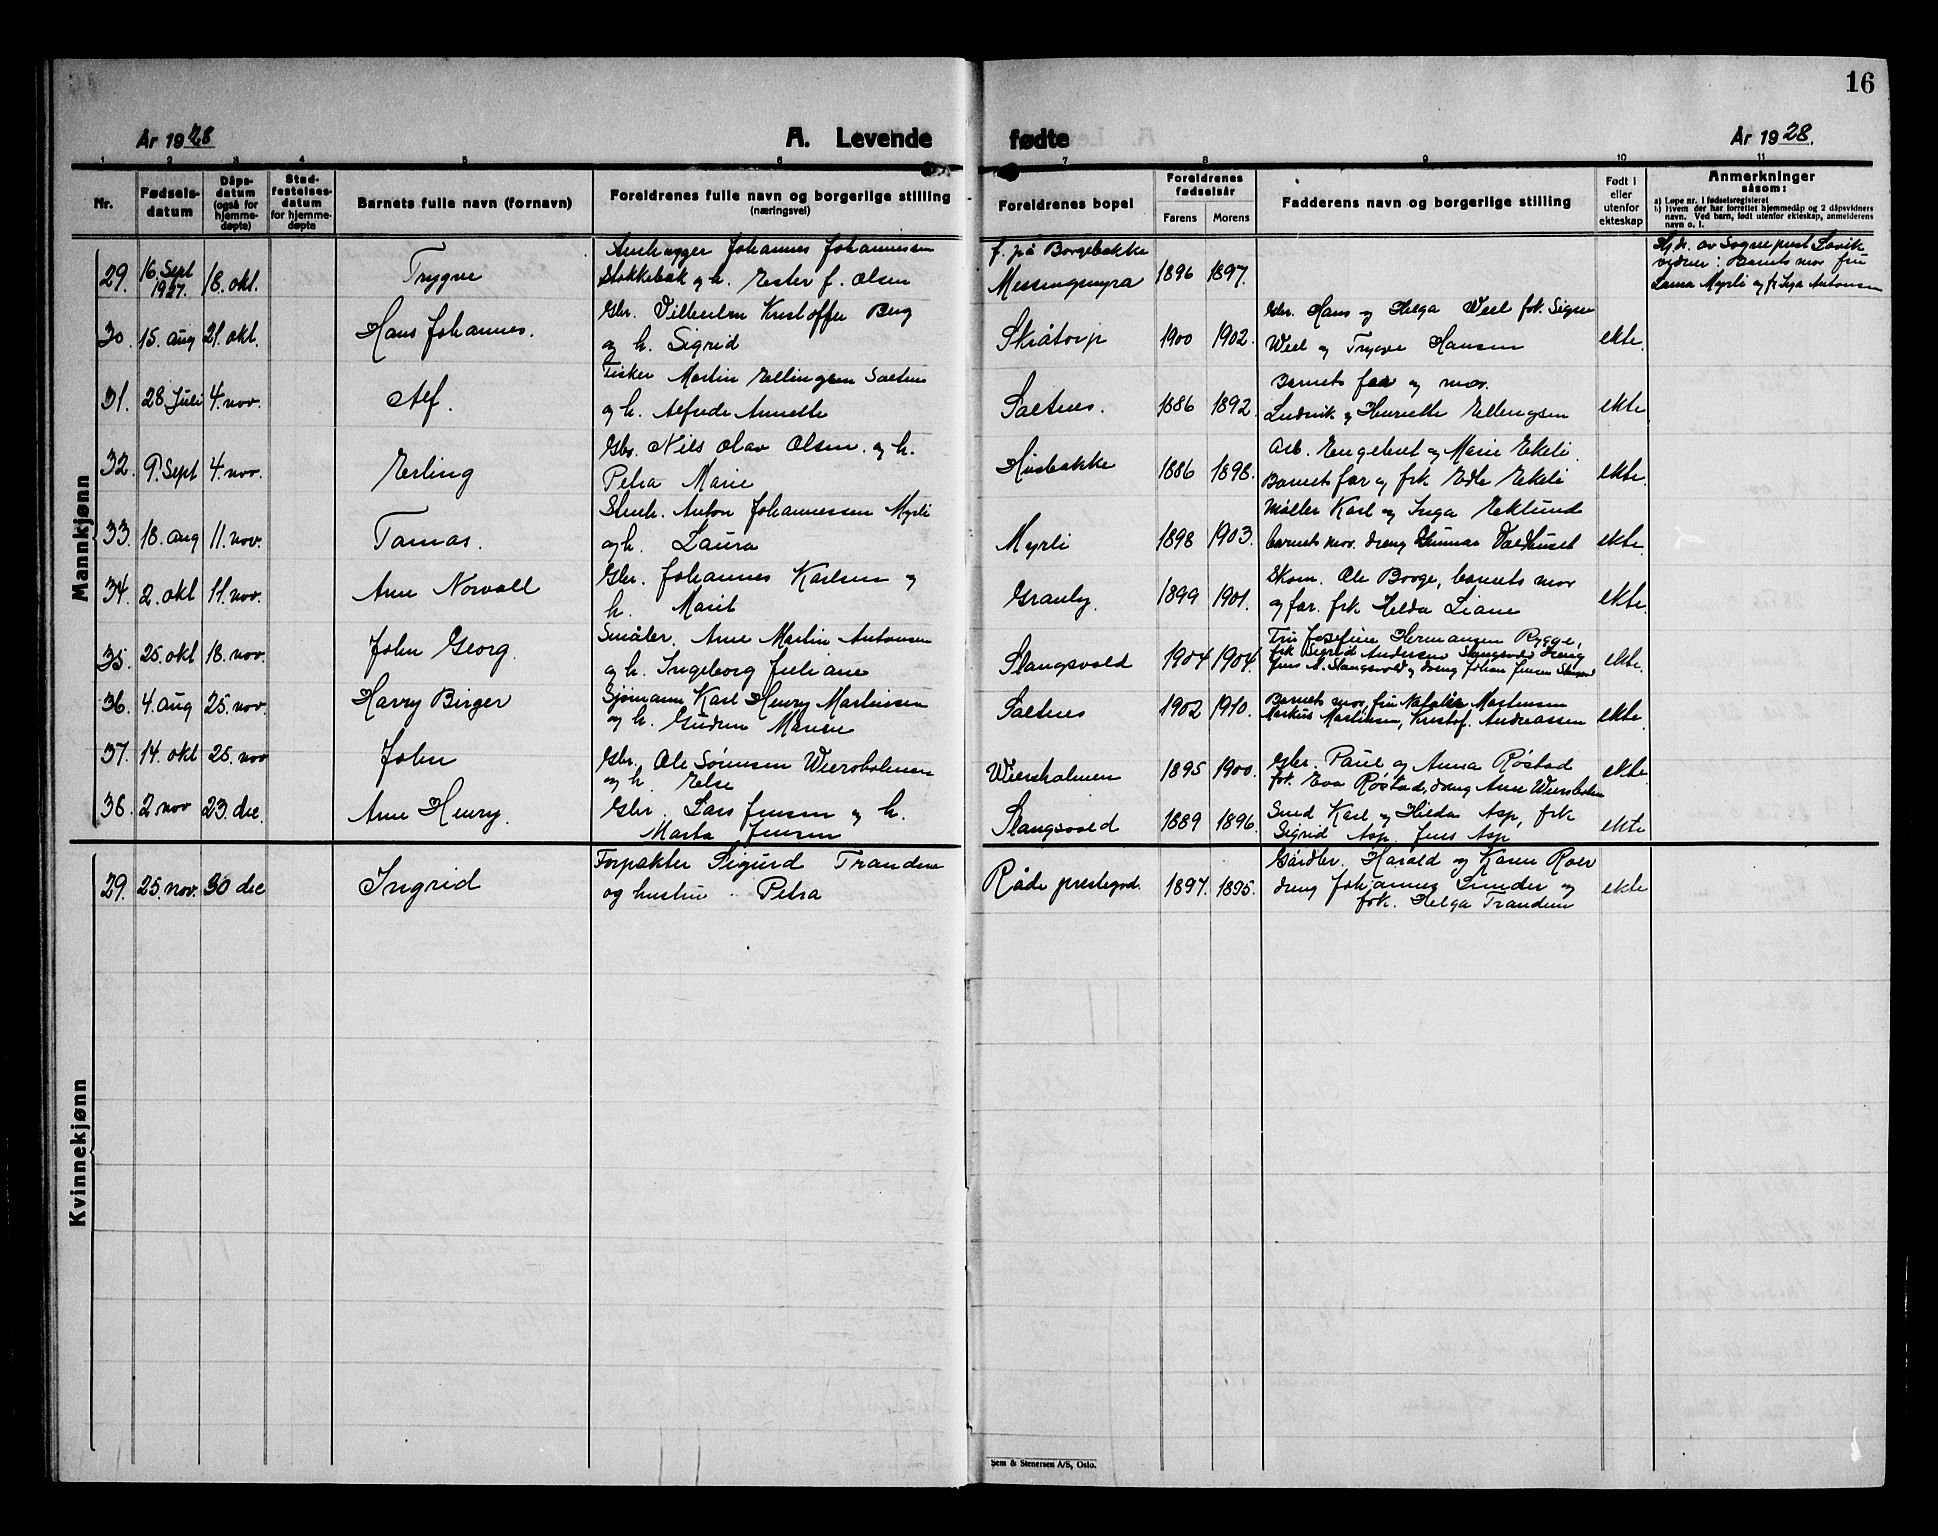 16
År 1928
A. Levende
fødte
År 1928.
1 2 3 4 5 6 7 8 9 10 11
Nr.
Fødsels-
datum
Dåps-
datum
(også for
hjemme-
døpte)
Stad-
festelses-
datum
for hjemme-
døpte
Barnets fulle navn (fornavn)
Foreldrenes fulle navn og borgerlige stilling
(næringsvei)
Foreldrenes bopel
Foreldrenes
fødselsår
Farens Morens
Fadderens navn og borgerlige stilling
Født i
eller
utenfor
ekteskap
Anmerkninger
såsom:
a) Løpe nr. i fødselsregisteret
b) Hvem der har forrettet hjemmedåp og 2 dåpsvidners
navn. Ved barn, født utenfor ekteskap, anmelderens
navn o. l.
Mankjønn
29. 16. Sept 1927. 18. okt. Trygve
Johannes Johannessen
Stokkebæk og h. Ester f. Olsen
f. på Borgebakke
Messingmyra 1896 1897.
Hj.d. av Sogneprest Løvik
vidner: Barnets mor fru
Laura Myrli og fr. Inga Antonsen
30. 15. aug 21. okt. Hans Johannes.
Gbr. Vilhelm Kristoffer Berg
og h. Sigrid
Skråtorp 1900 1902.
Gbr. Hans og Helga Weel frk. Signe
Weel og Trygve Hansen
ekte.
31. 28 Juli 4. nov. Alf.
Fisker Martin Ellingsen Saltnes
og h. Alfrede Annette
Saltnes. 1886 1892.
Barnets far og mor.
Ludvik og Henriette Ellingsen
ekte
32. 9. Sept 4. nov. Erling
Gbr. Nils Olav Olsen og h.
Petra Marie
Husbakke 1886 1898.
Arb. Engebret og Marie Ekeli.
Barnets far og frk Edle Ekeli
ekte.
33. 18. aug 11. nov. Tomas.
Stenh. Anton Johannessen Myrli
og h. Laura
Myrli 1898 1903.
Møller Karl og Inga Eklund
barnets mor. dreng Gunnar
ekte.
34. 2. okt 11. nov. Arne Norvall
Gbr. Johannes Karlsen og
h. Marit
Granby. 1899 1901.
Skom. Ole Borge, barnets mor
og far. frk Helda Liane
ekte.
35. 25. okt 18. nov. John Georg.
Småbr. Arne Martin Antonsen
og h. Ingeborg Juliane
Slangsvold 1904 1904.
Fru Josefine Hermansen Rygge,
frk Sigrid Andersen Slangsvold, dreng
Jens A. Slangsvold og dreng Johan Jensen
ekte.
36. 4. aug 25. nov. Harry Birger
Sjømann Karl Henry Martinsen
og h. Gudrun
Saltnes 1902 1910.
Barnets mor, fru Natalie Martinsen
Markus Martinsen, Kristof. Andreassen
ekte.
37. 14. okt 25. nov John
Gbr. Ole Sørensen Wiersholmen
og h. Else
Wiersholmen 1895 1900.
Gbr. Paul og Anna Røstad
frk. Eva Røstad, dreng Arne Wiersholm
ekte
38. 2. nov 23. dec. Arne Henry.
Gbr. Lars Jensen og h.
Marta Jensen
Slangsvold 1889 1896.
Smed Karl og Hilda Asp, frk
Sigrid Asp. Jens Asp
ekte
Kvinnekjønn
29. 25. nov. 30 dec Ingrid
Forpakter Sigurd Trandem
og hustru Petra
Råde prestegd. 1897. 1895.
Gårdbr. Harald og Karen Roer
dreng Johannes Sunder og
frk. Helga Trandem
ekte
Sem & Stenersen A/S, Oslo.